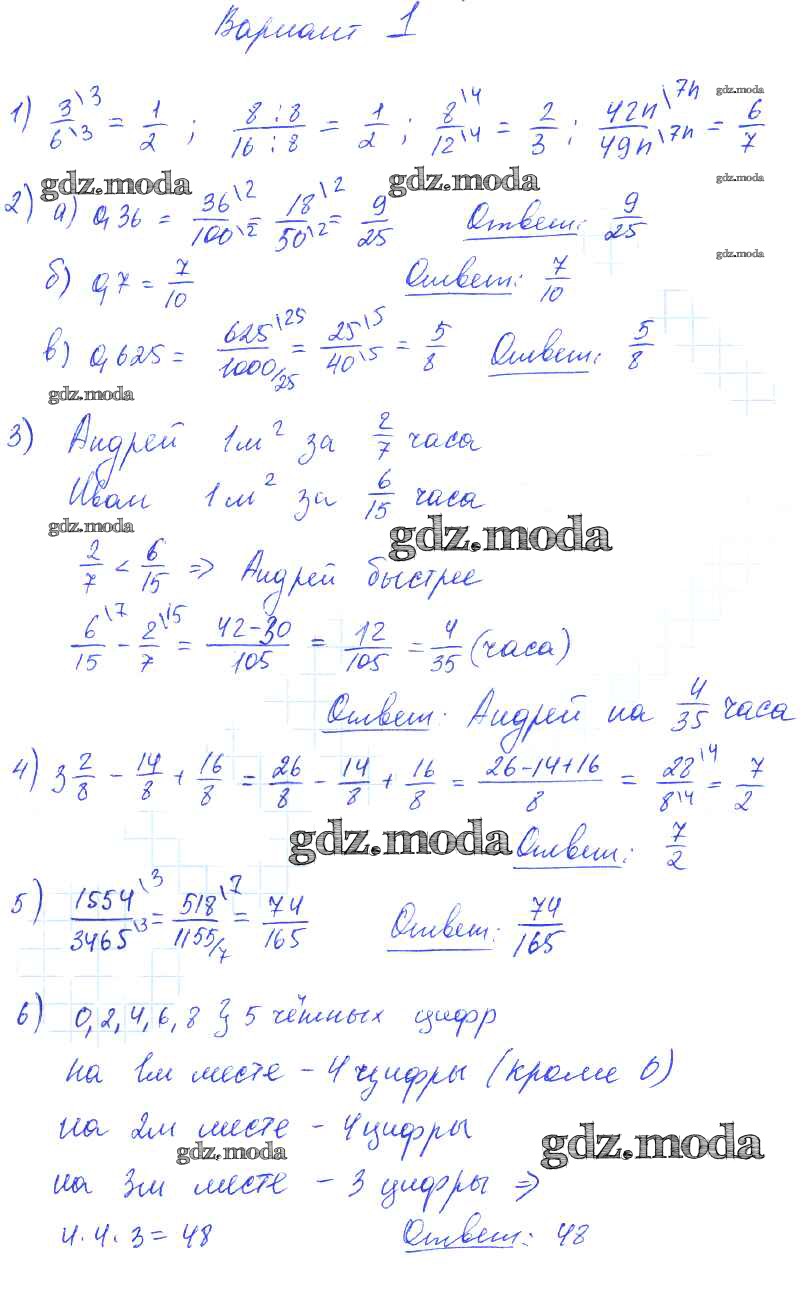 Вариант 1
1) 3\3/6\3 = 1/2 ; 8:8/16:8 = 1/2 ; 8\4/12\4 = 2/3 ; 42n\7n/49n\7n = 6/7
gdz.moda
gdz.moda gdz.moda gdz.moda
2) а) 0,36 = 36\2/100\2 = 18\2/50\2 = 9/25 Ответ: 9/25
gdz.moda
б) 0,7 = 7/10 Ответ: 7/10
в) 0,625 = 625\25/1000/25 = 25\5/40\5 = 5/8 Ответ: 5/8
gdz.moda
3) Андрей 1м² за 2/7 часа
Иван 1м² за 6/15 часа
gdz.moda gdz.moda
2/7 < 6/15 => Андрей быстрее
6\7/15 - 2\15/7 = 42-30/105 = 12/105 = 4/35 (часа)
Ответ: Андрей на 4/35 часа
4) 3 2/8 - 14/8 + 16/8 = 26/8 - 14/8 + 16/8 = 26-14+16/8 = 28\4/8\4 = 7/2
gdz.moda Ответ: 7/2
5) 1554\3/3465\3 = 518\7/1155/7 = 74/165 Ответ: 74/165
6) 0,2,4,6,8 } 5 чётных цифр
на 1м месте - 4 цифры (кроме 0)
на 2м месте - 4 цифры
gdz.moda gdz.moda
на 3м месте - 3 цифры =>
4·4·3=48 Ответ: 48